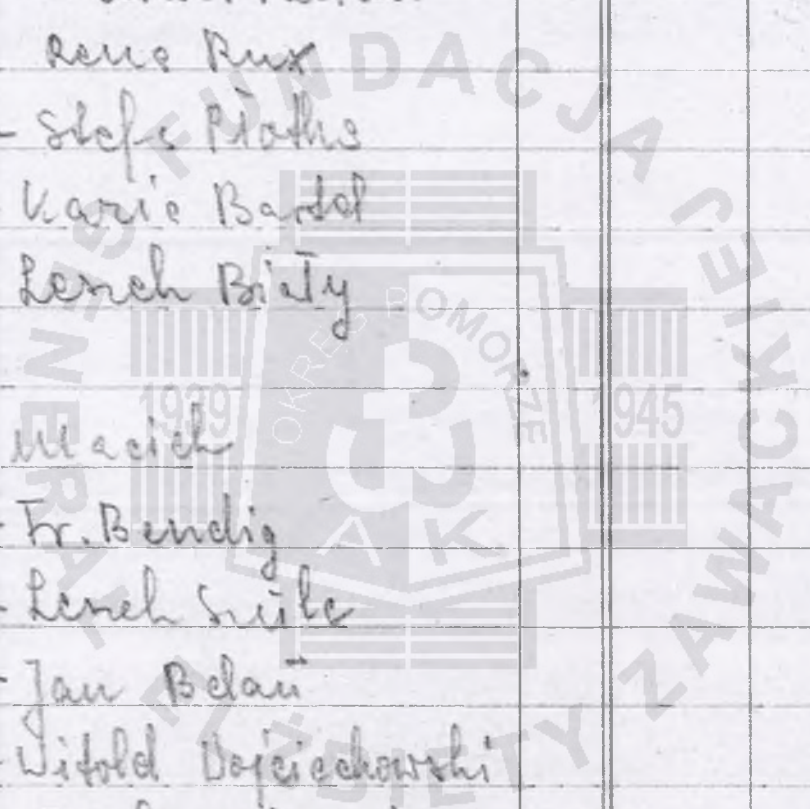 Rena Rux
- Stefa Płotka
Kazia Bartel
Leszek Biały
Maciek
- Fr. Bendig
- Leszek
- Jan Belau
- Witold Wojciechowski
FUNDACJA GENERAŁ ELŻBIETY ZAWACKIEJ
OKRĘG POMORZE
1939 1945
AK